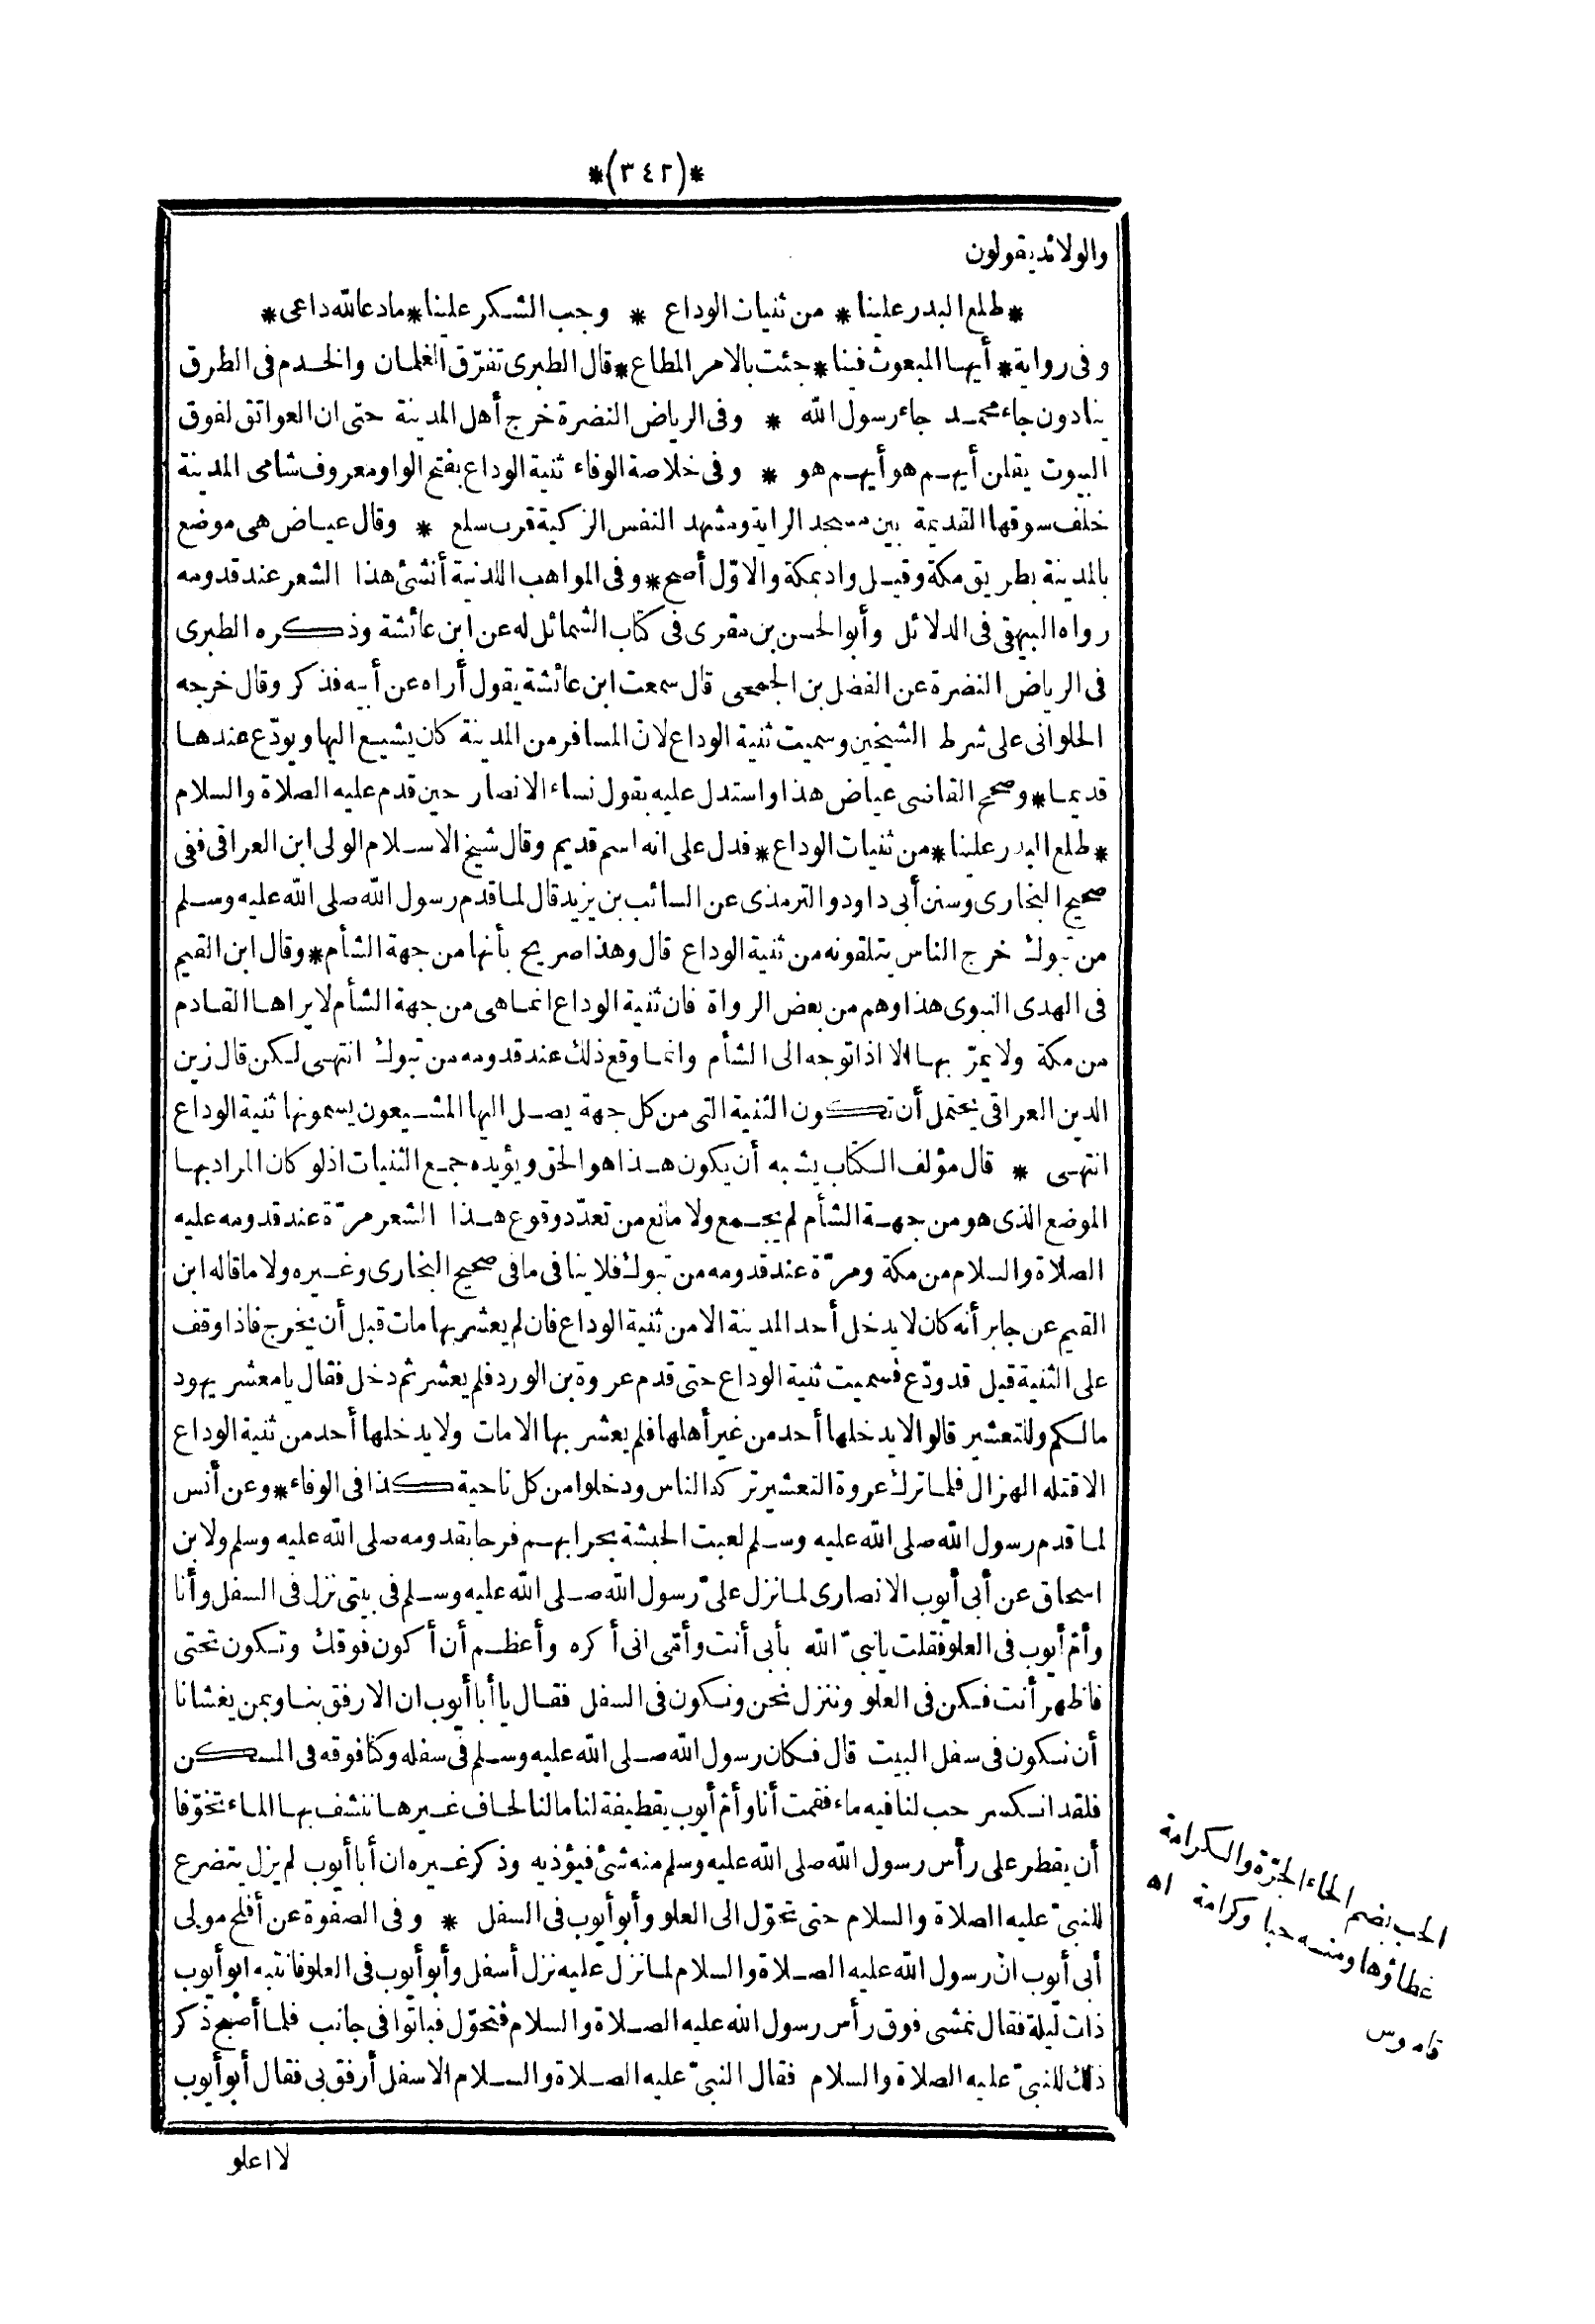 *(٣٤٢)*
والولائد يقولون
*طلع البدر علينا* من ثنيات الوداع * وجب الشكر علينا*ما دعا لله داعى*
وفى رواية* أيها المبعوث فينا*جئت بالامر المطاع*قال الطبرى تفرّق الغلمان والخدم فى الطرق
ينادون جاء محمد جاء رسول الله * وفى الرياض النضرة خرج أهل المدينة حتى ان العواتق لفوق
البيوت يقلن أيهم هو أيهم هو * وفى خلاصة الوفاء ثنية الوداع بفتح الواو معروف شامى المدينة
خلف سوقها القديمة بين مسجد الراية ومشهد النفس الزكية قرب سلع * وقال عياض هى موضع
بالمدينة بطريق مكة وقيل واد بمكة والاوّل أصح*وفى المواهب اللدنية أنشئ هذا الشعر عند قدومه
رواه البيهقى فى الدلائل وأبو الحسن بن مقرى فى كتاب الشمائل له عن ابن عائشة وذكره الطبرى
فى الرياض النضرة عن الفضل بن الجمعى قال سمعت ابن عائشة يقول أراه عن أبيه فذكر وقال خرجه
الحلوانى على شرط الشيخين وسميت ثنية الوداع لان المسافر من المدينة كان يشيع اليها ويودّع عندها
قديما*وصحح القاضى عياض هذا واستدل عليه بقول نساء الانصار حين قدم عليه الصلاة والسلام
*طلع البدر علينا*من ثنيات الوداع*فدل على انه اسم قديم وقال شيخ الاسلام الولى ابن العراقى ففى
صحيح البخارى وسنن أبى داود والترمذى عن السائب بن يزيد قال لما قدم رسول الله صلى الله عليه وسلم
من تبوك خرج الناس يتلقونه من ثنية الوداع قال وهذا صريح بأنها من جهة الشأم*وقال ابن القيم
فى الهدى النبوى هذا وهم من بعض الرواة فان ثنية الوداع انما هى من جهة الشأم لا يراها القادم
من مكة ولا يمرّ بها الا اذا توجه الى الشأم وانما وقع ذلك عند قدومه من تبوك انتهى لكن قال زين
الدين العراقى يحتمل أن تكون الثنية التى من كل جهة يصل اليها المشيعون يسمونها ثنية الوداع
انتهى * قال مؤلف الكتاب يشبه أن يكون هذا هو الحق ويؤيده جمع الثنيات اذ لو كان المراد بها
الموضع الذى هو من جهة الشأم لم يجمع ولا مانع من تعدّد وقوع هذا الشعر مرّة عند قدومه عليه
الصلاة والسلام من مكة ومرّة عند قدومه من تبوك فلا ينافى ما فى صحيح البخارى وغيره ولا ما قاله ابن
القيم عن جابر أنه كان لا يدخل أحد المدينة الا من ثنية الوداع فان لم يعشر بها مات قبل أن يخرج فاذا وقف
على الثنية قيل قد ودّع فسميت ثنية الوداع حتى قدم عروة بن الورد فلم يعشر ثم دخل فقال يا معشر يهود
مالكم وللتعشير قالوا لا يدخلها أحد من غير أهلها فلم يعشر بها الا مات ولا يدخلها أحد من ثنية الوداع
الا قتله الهزال فلما ترك عروة التعشير تركه الناس ودخلوا من كل ناحية كذا فى الوفاء*وعن أنس
لما قدم رسول الله صلى الله عليه وسلم لعبت الحبشة بحرابهم فرحا بقدومه صلى الله عليه وسلم ولابن
اسحاق عن أبى أيوب الانصارى لما نزل علىّ رسول الله صلى الله عليه وسلم فى بيتى نزل فى السفل وأنا
وأمّ أيوب فى العلو فقلت يا نبىّ الله بأبى أنت وأمّى انى أكره وأعظم أن أكون فوقك وتكون تحتى
فاظهر أنت فكن فى العلو وننزل نحن ونكون فى السفل فقال يا أبا أيوب ان الارفق بنا وبمن يغشانا
أن نكون فى سفل البيت قال فكان رسول الله صلى الله عليه وسلم فى سفله وكنا فوقه فى المسكن
فلقد انكسر حب لنا فيه ماء فقمت أنا وأمّ أيوب بقطيفة لنا مالنا لحاف غيرها ننشف بها الماء تخوّفا
أن يقطر على رأس رسول الله صلى الله عليه وسلم منه شئ فيؤذيه وذكر غيره ان أبا أيوب لم يزل يتضرع
للنبىّ عليه الصلاة والسلام حتى تحوّل الى العلو وأبو أيوب فى السفل * وفى الصفوة عن أفلح مولى
أبى أيوب انّ رسول الله عليه الصلاة والسلام لما نزل عليه نزل أسفل وأبو أيوب فى العلو فانتبه أبو أيوب
ذات ليلة فقال نمشى فوق رأس رسول الله عليه الصلاة والسلام فتحوّل فباتوا فى جانب فلما أصبح ذكر
ذلك للنبىّ عليه الصلاة والسلام فقال النبىّ عليه الصلاة والسلام الاسفل أرفق بى فقال أبو أيوب
لا اعلو
الحب بضم الحاء الجرّة والكرامة
غطاؤها ومنه حبا وكرامة اه
قاموس